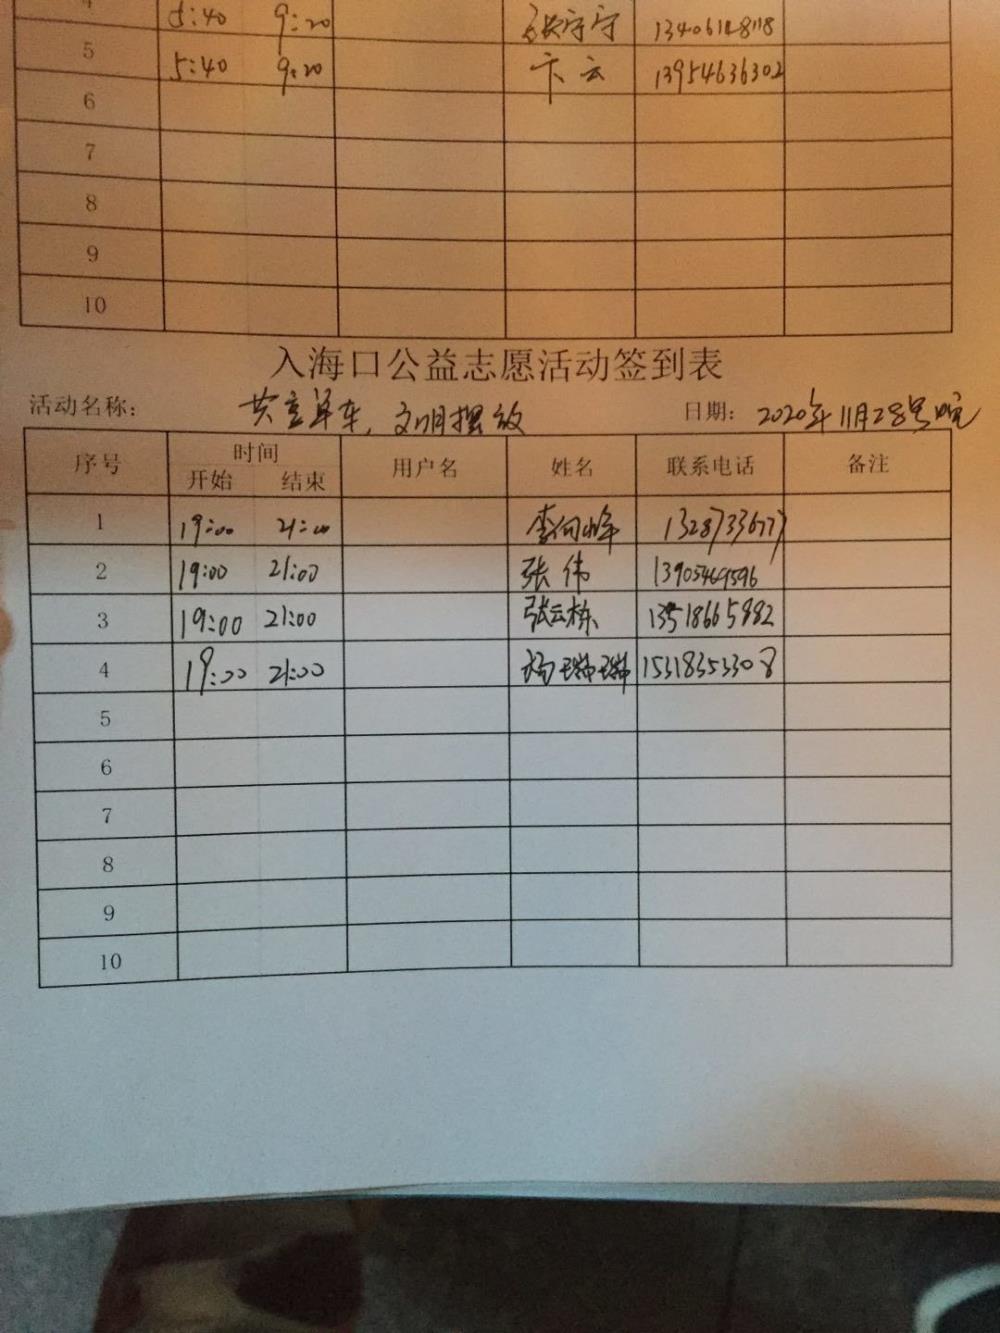 4 5:40 9:20 张宁宁
5 5:40 9:20 卞云 13954636302
6
7
8
9
10
入海口公益志愿活动签到表
活动名称: 共享单车,文明摆放 日期: 2020年11月28号晚
序号 时间 开始 结束 用户名 姓名 联系电话 备注
1 19:00 21:00 李向峰 13287336777
2 19:00 21:00 张伟 13905469596
3 19:00 21:00 张云栋 13518665882
4 19:00 21:00 杨瑞瑞 15318353308
5
6
7
8
9
10